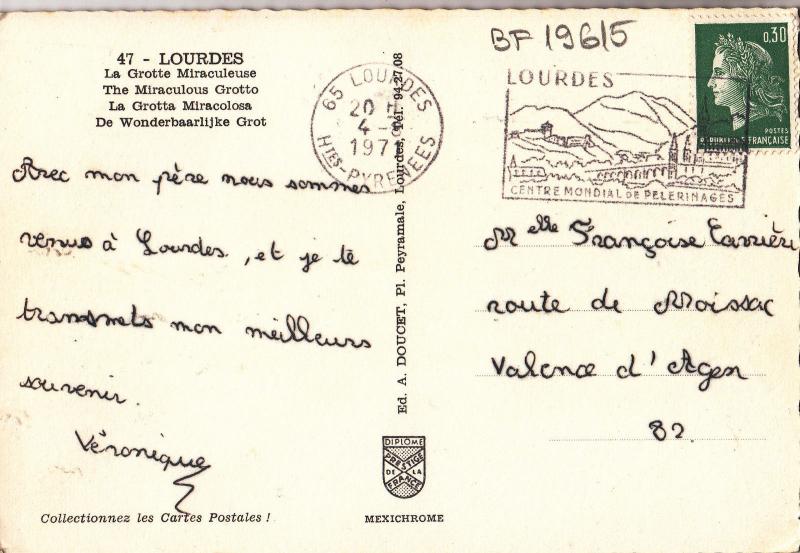 47 - LOURDES
La Grotte Miraculeuse
The Miraculous Grotto
La Grotta Miracolosa
De Wonderbaarlijke Grot
Avec mon père nous sommes
venus à Lourdes, et je te
transmets mon meilleurs
souvenir.
Véronique
Collectionnez les Cartes Postales !
65 LOURDES
20 H
4 -
1971
HTES-PYRENEES
Ed. A. DOUCET, Pl. Peyramale, Lourdes, Tél. 94-27.08
DIPLOME
PRESTIGE
DE LA
FRANCE
MEXICHROME
BF 1965
LOURDES
CENTRE MONDIAL DE PELERINAGES
0,30
POSTES
FRANÇAISE
Melle Françoise Carrière
route de Moissac
Valence d'Agen
82